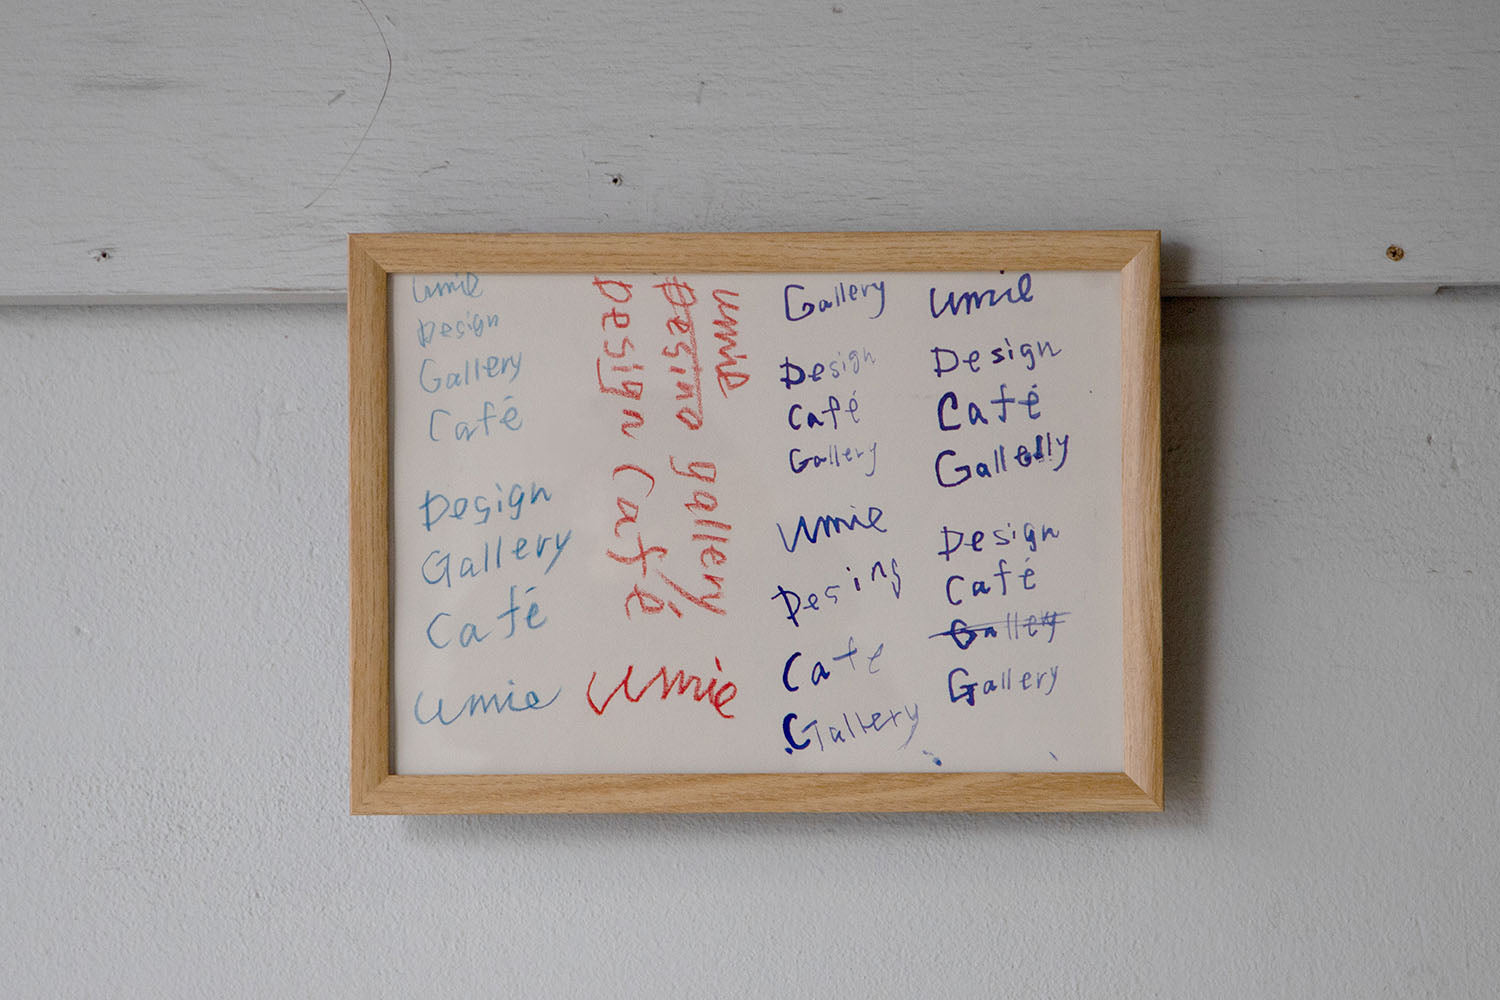 umie
Design
Gallery
Café
Design
Gallery
Café
umie
umie
Desino gallery
Design Café
umie
Gallery
Design
Café
Gallery
umie
Desing
Cafe
Gallery
umie
Design
Café
Gallelly
Design
Café
Gallery
Gallery